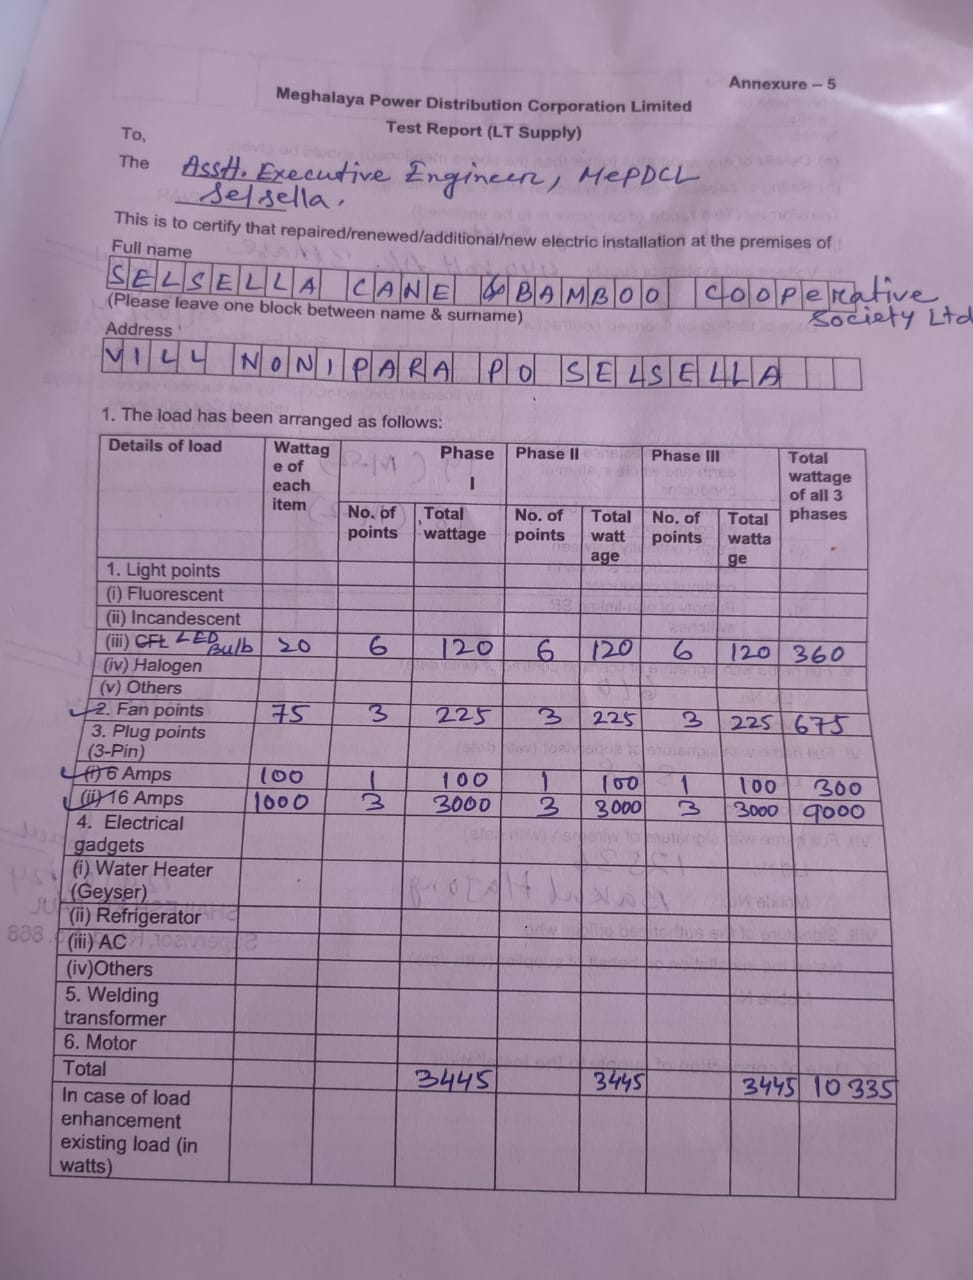 Annexure – 5
Meghalaya Power Distribution Corporation Limited
Test Report (LT Supply)
To,
The Asstt. Executive Engineer, MePDCL
Selsella.
This is to certify that repaired/renewed/additional/new electric installation at the premises of
Full name
SELSELLA CANE & BAMBOO COOPerative
(Please leave one block between name & surname) Society Ltd
Address
VILL NONIPARA PO SELSELLA
1. The load has been arranged as follows:
Details of load Wattag e of each item Phase I Phase II Phase III Total wattage of all 3 phases
No. of points Total wattage No. of points Total watt age No. of points Total watta ge
1. Light points
(i) Fluorescent
(ii) Incandescent
(iii) CFL LED Bulb 20 6 120 6 120 6 120 360
(iv) Halogen
(v) Others
2. Fan points 75 3 225 3 225 3 225 675
3. Plug points
(3-Pin)
(i) 6 Amps 100 1 100 1 100 1 100 300
(ii) 16 Amps 1000 3 3000 3 3000 3 3000 9000
4. Electrical
gadgets
(i) Water Heater
(Geyser)
(ii) Refrigerator
(iii) AC
(iv)Others
5. Welding
transformer
6. Motor
Total 3445 3445 3445 10335
In case of load
enhancement
existing load (in
watts)